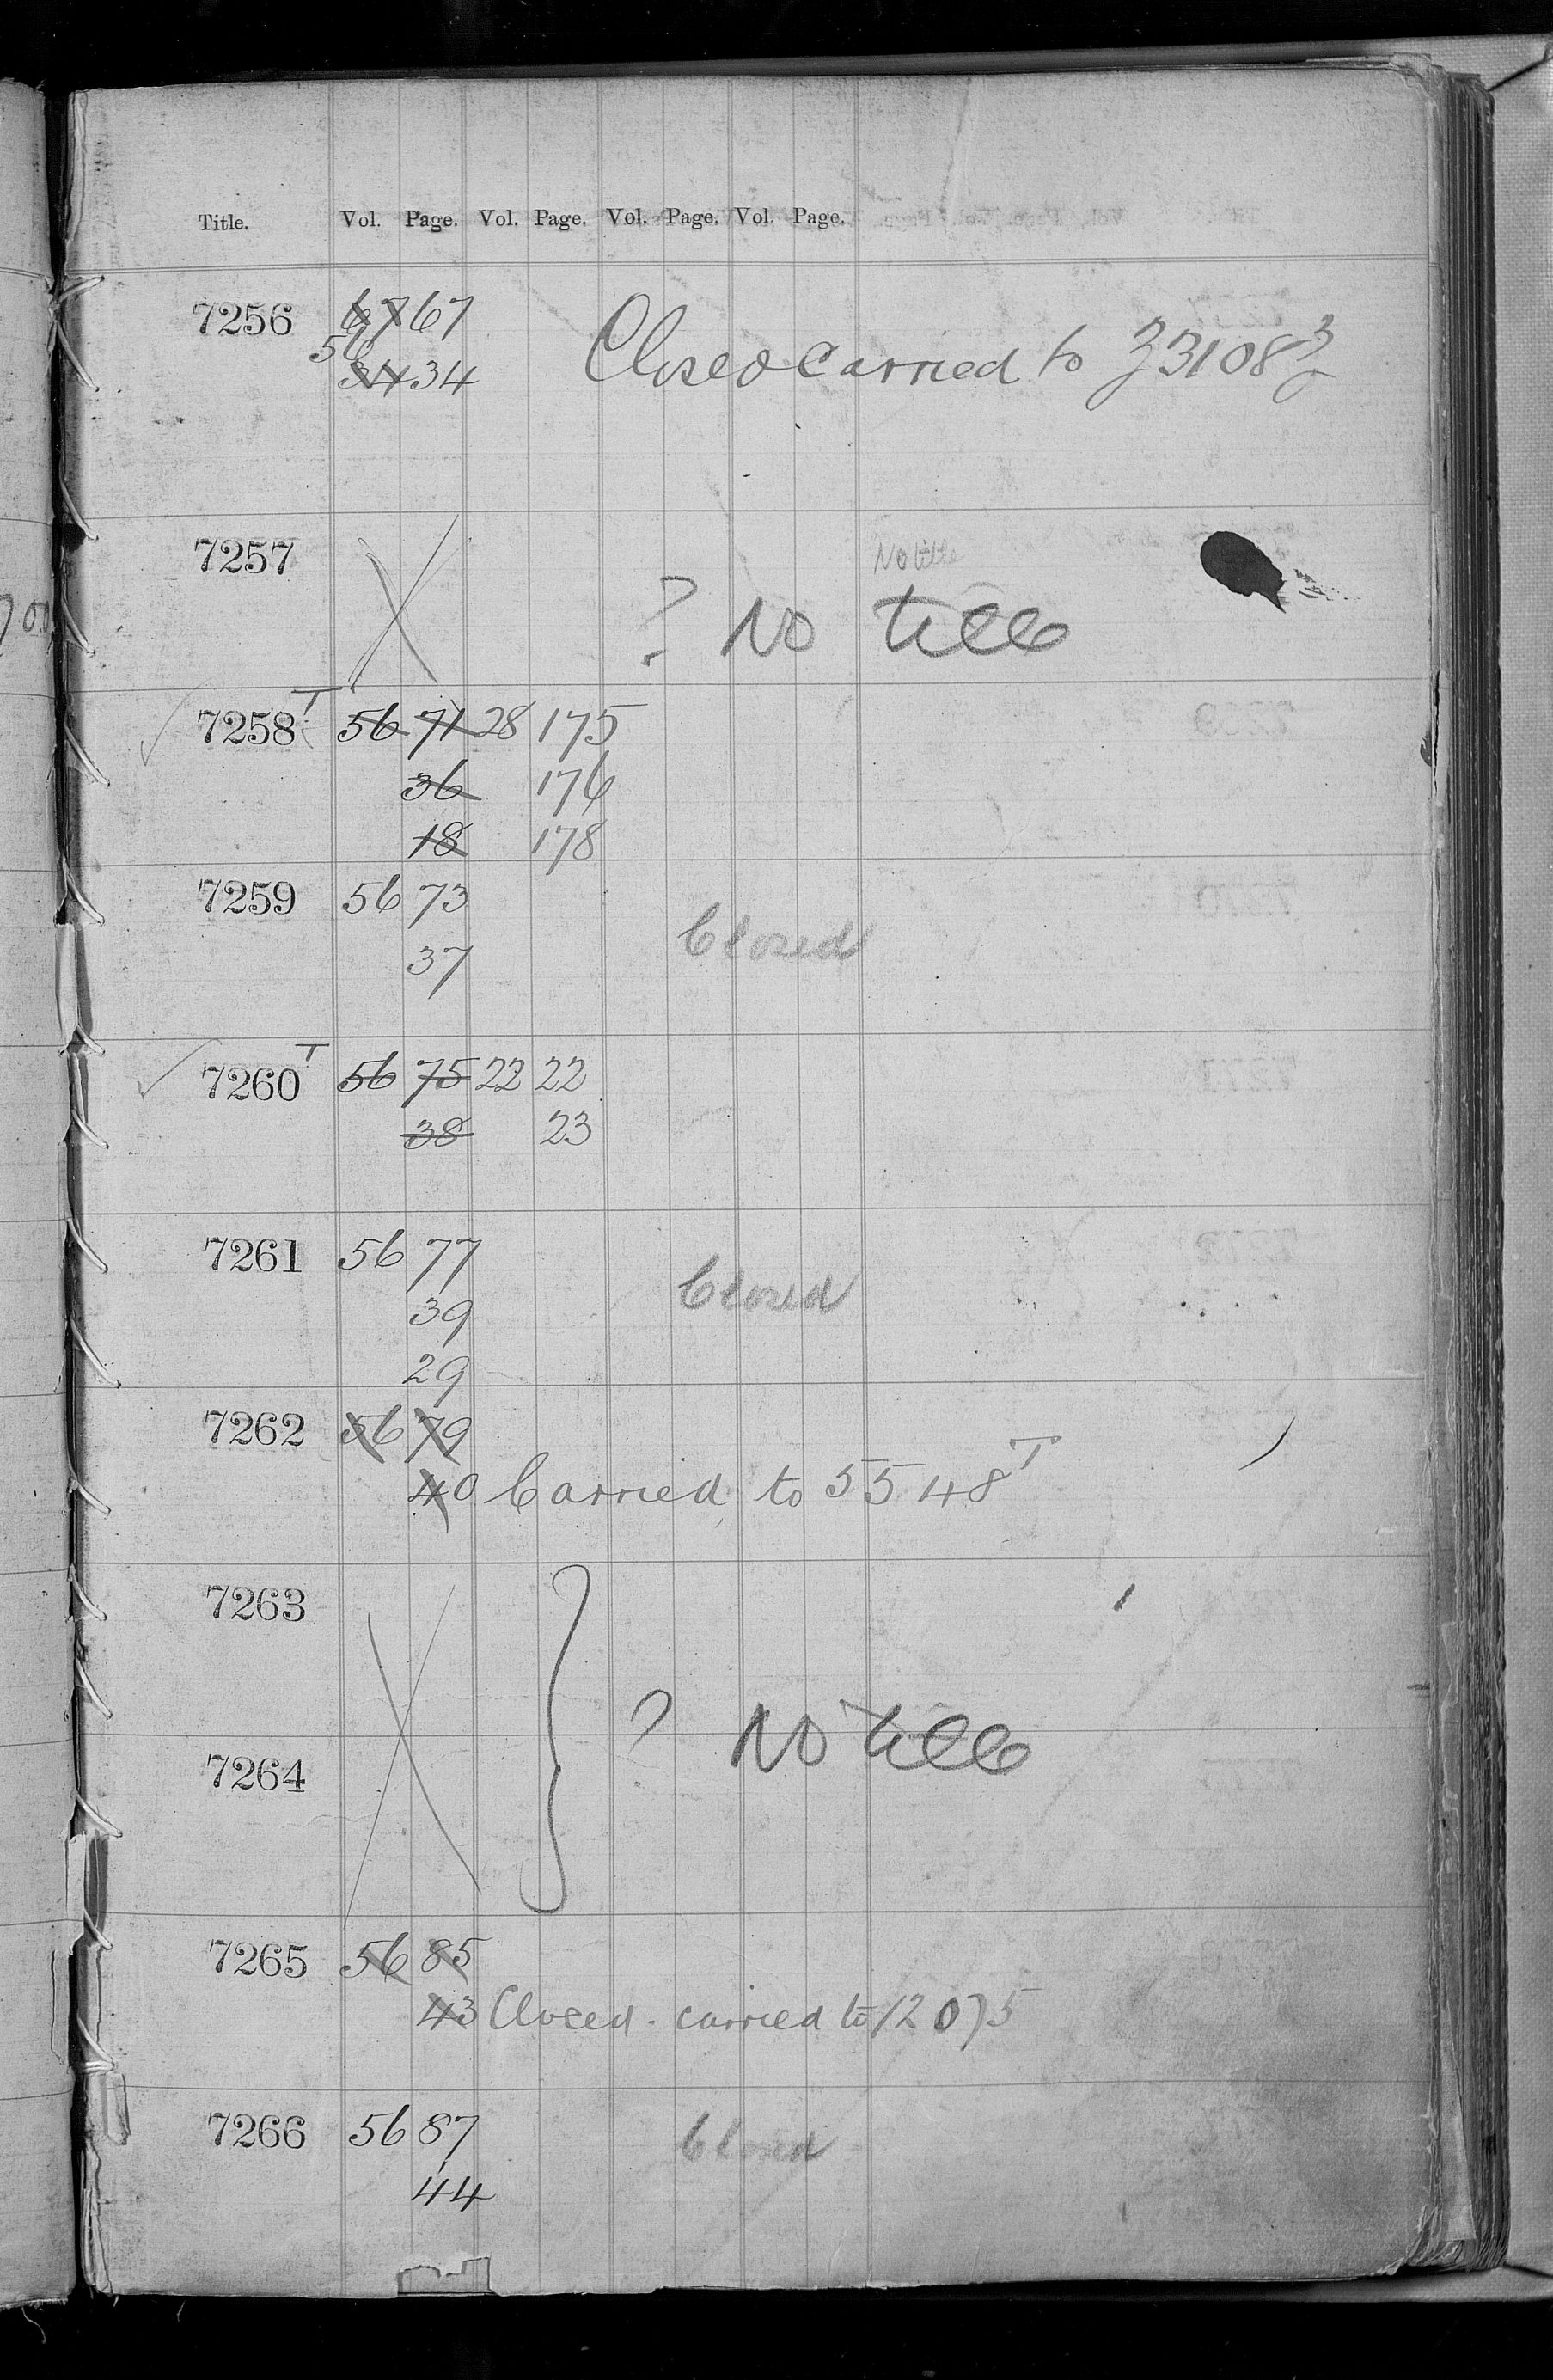 Title. Vol. Page. Vol. Page. Vol. Page. Vol. Page.
7256 67 67
56
34 34
Closed carried to 33108
No title
7257 ? No title
7258 T 56 71 28 175
36 176
18 178
7259 56 73
37 Closed
7260 T 56 75 22 22
38 23
7261 56 77
39 Closed
29
7262 56 79
40 Carried to 5548 T
7263
? No title
7264
7265 56 85
43 Closed. carried to 12075
7266 56 87 Closed
44